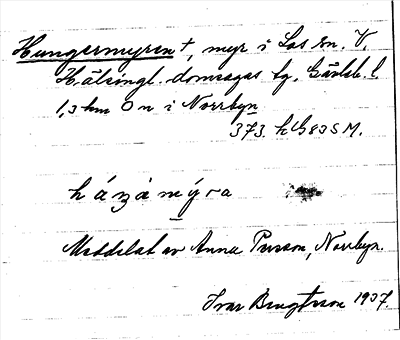 Hungermyren +, myr i Los sn. V.
Hälsingl. domsagas tg. Gävleb. l
1,3 km O n i Norrbyn
373. h G 83 S M.
h á z à m ý r a
Meddelat av Anna Persson, Norrbyn.
Ivar Bengtsson 1937